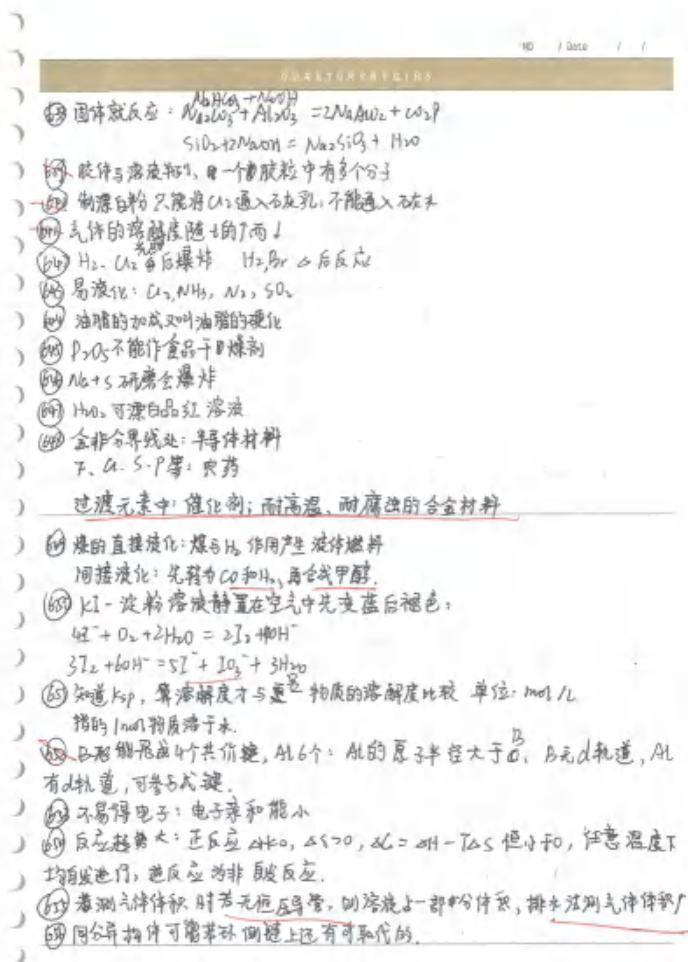 NO / Date / /
NaHCO₃ → NaOH
固体就反应：Na₂CO₃ + Al₂O₃ = 2NaAlO₂ + CO₂↑
SiO₂+2NaOH = Na₂SiO₃ + H₂O
胶体与溶液判别，一个胶粒中有多个分子
制漂白粉只能将Cl₂通入石灰乳，不能通入石灰水
气体的溶解度随t的↑而↓
(642) H₂、Cl₂ 光照后爆炸 H₂,Br △后反应
(643) 易液化：Cl₂,NH₃, N₂, SO₂
(644) 油脂的加成又叫油脂的硬化
(645) P₂O₅不能作食品干燥剂
(646) Na+S 研磨会爆炸
(647) H₂O₂可漂白品红溶液
(648) 金非分界线处：半导体材料
F、Cl、S、P等：农药
过渡元素中：催化剂；耐高温、耐腐蚀的合金材料
(649) 煤的直接液化：煤与H₂作用产生液体燃料
间接液化：先转为CO和H₂，再合成甲醇.
(650) KI-淀粉溶液静置在空气中先变蓝后褪色：
4I⁻ + O₂ + 2H₂O = 2I₂ + 4OH⁻
3I₂+6OH⁻ = 5I⁻ + IO₃⁻ + 3H₂O
(651) 知道Ksp，算溶解度才与 物质的溶解度比较 单位：mol/L
指的1mol物质溶于水.
(652) 能形成4个共价键，Al 6个：Al的原子半径大于B，B无d轨道，Al
有d轨道，可参与成键.
(653) 不易得电子：电子亲和能小
(654) 反应趋势大：正反应 △H<0，△S>0，△G = △H - T△S 恒小于0，任意温度下
均自发进行，逆反应为非自发反应.
(655) 若测气体体积时若无恒压导管，则溶液占一部分体积，排水法测气体体积
(656) 同分异构体可能苯环侧链上还有可取代的.